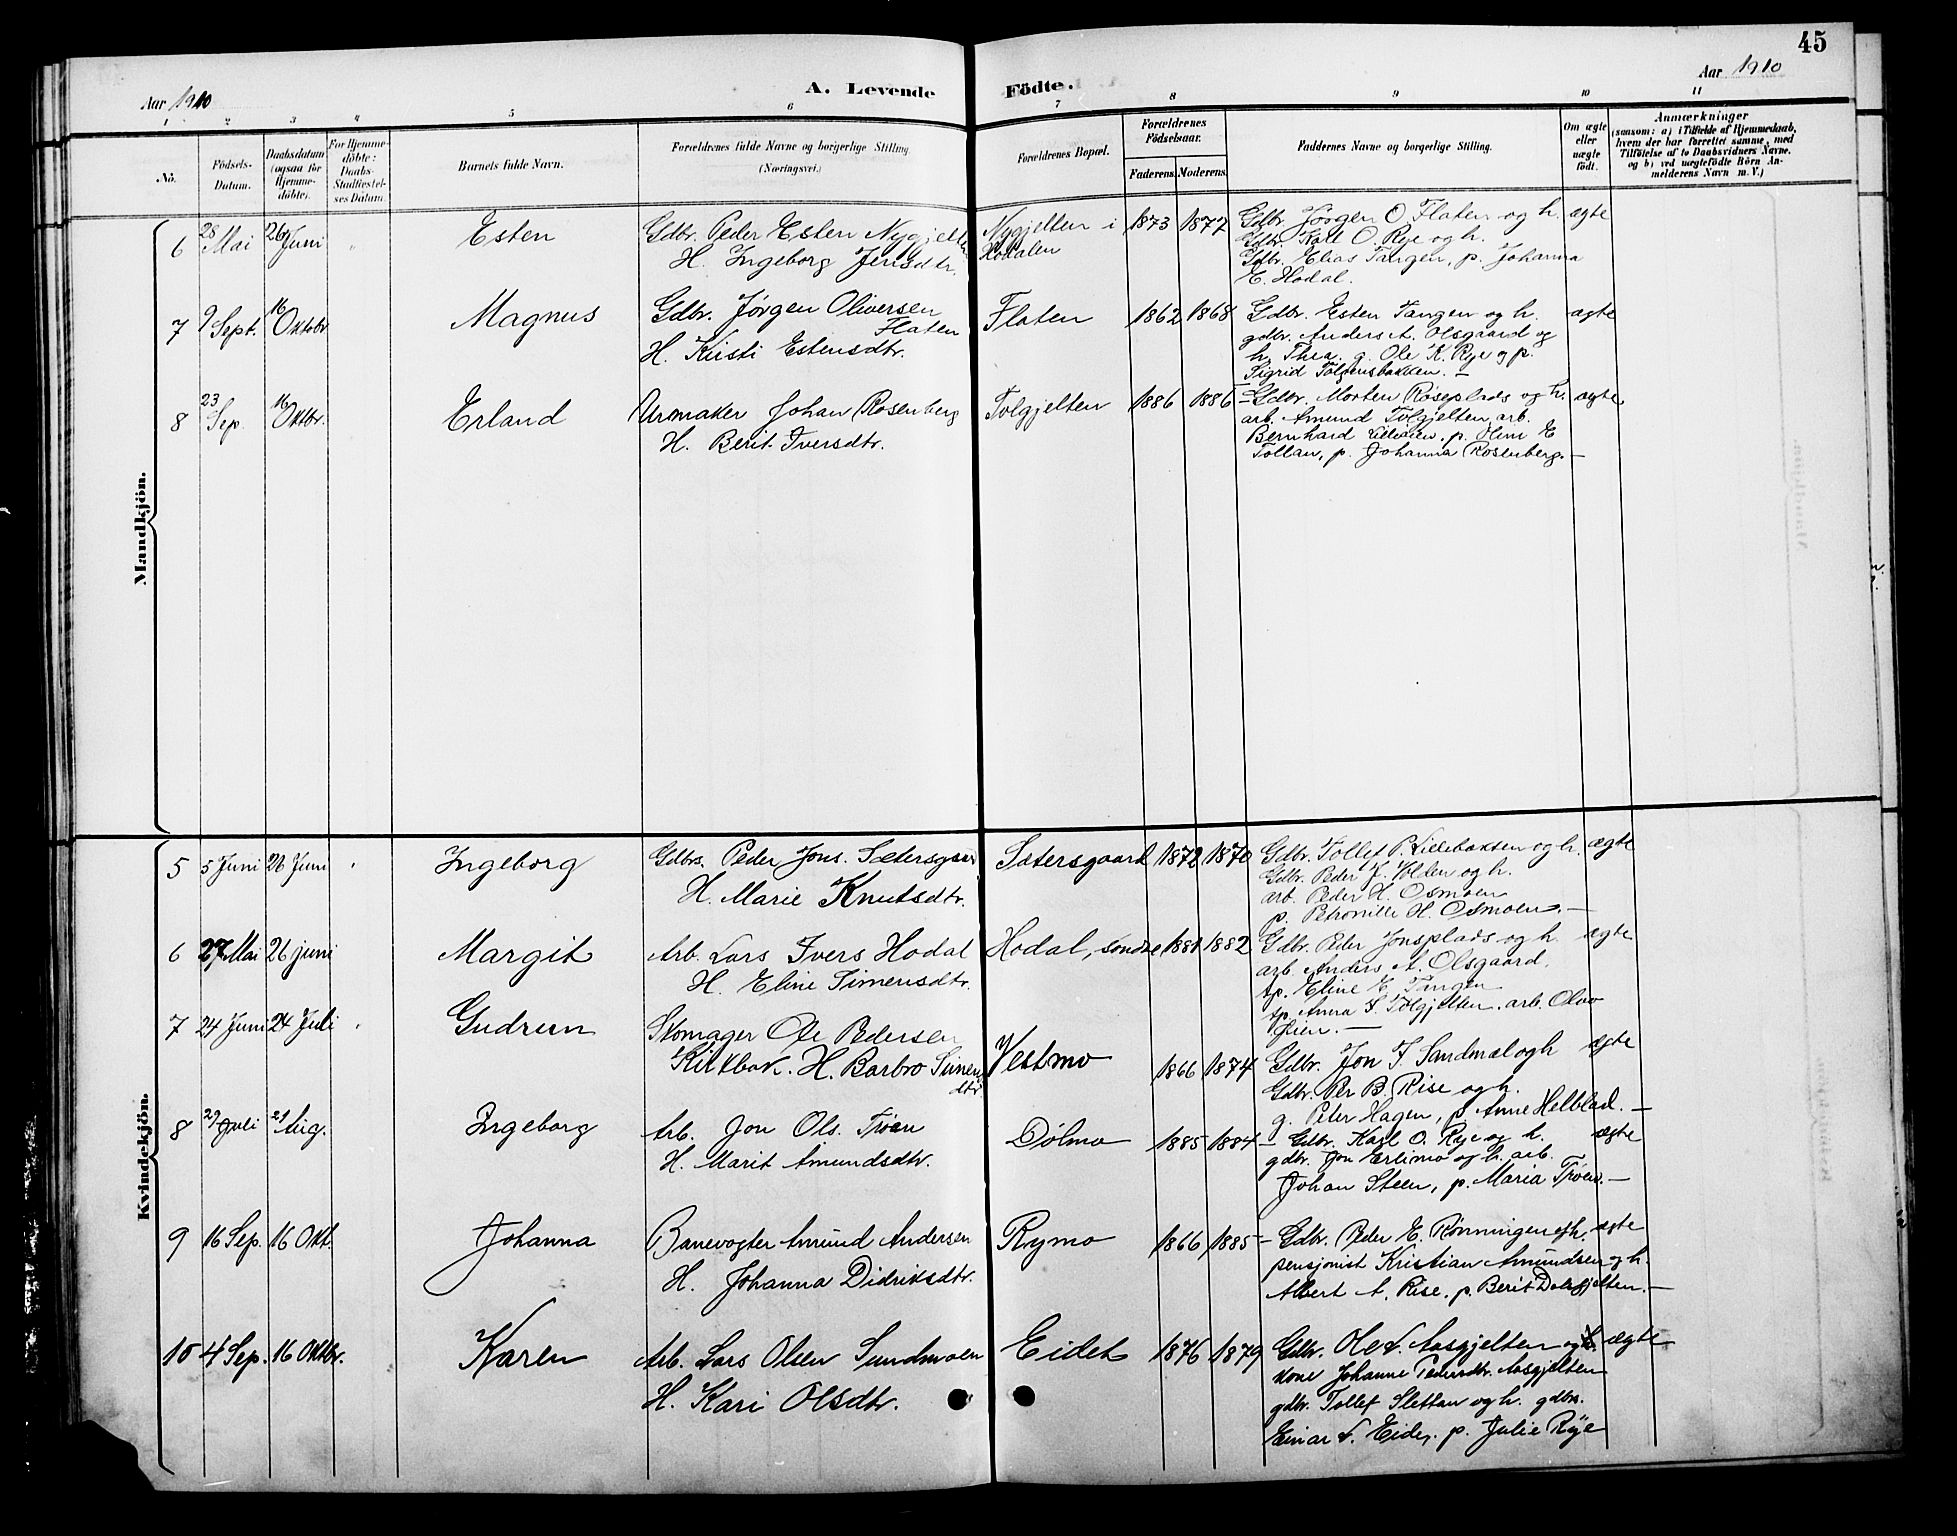 45
Aar 1910
A. Levende
Födte.
Aar 1910
1 2 3 4 5 6 7 8 9 10 11
No.
Födsels-
Datum.
Daabsdatum
(ogsaa for
Hjemme-
döbte).
For Hjemme-
döbte:
Daabs-
Stadfæstel-
ses Datum
Barnets fulde Navn.
Forældrenes fulde Navne og borgerlige Stilling
(Næringsvei.)
Forældrenes Bopæl.
Forældrenes
Födselsaar.
Faderens.
Moderens.
Faddernes Navne og borgerlige Stilling.
Om ægte
eller
uægte
födt.
Anmærkninger
(saasom: a) i Tilfælde af Hjemmedaab,
hvem der har forrettet samme, med
Tilföielse af to Daabsvidners Navne.
og b) ved uægtefödte Börn An-
melderens Navn m. V.)
Mandkjön.
6 28 Mai 26 Juni " Esten
Gdbr. Peder Esten Nygjelten
H. Ingeborg Jensdtr.
Nygjelten i
Hodalen
1873 1877
Gdbr. Jörgen O. Flaten og h.
Gdbr. Karl O. Rye og h.
Gdbr. Elias Tangen, p. Johanna
E. Hodal.
ægte
7 9 Sept. 16 Oktobr Magnus
Gdbr. Jørgen Oliversen
Flaten
H. Kirsti Estensdtr.
Flaten
1862 1868
Gdbr. Esten Tangen og h.
gdbr. Anders A. Olsgaard og
h. Thea. g. Ole K. Rye og p.
Sigrid Tolgensbakken. –
ægte
8 23 Sep. 16 Oktbr. Erland
Urmaker Johan Rosenberg
H. Berit Iversdtr.
Tolgjelten
1886 1886
Gdbr. Morten Röseplads og h.
arb. Amund Tolgjelten, arb.
Bernhard p. Oline E
Tollan, p. Johanna Rosenberg. –
ægte
Kvindekjön.
5 5 Juni 26 Juni " Ingeborg
Gdbrs. Peder Jons. Sætersgaard
H. Marie Knutsdtr.
Sætersgaard
1872 1870
Gdbr. Tollef P. Lillebakken og h.
Gdbr. Peder J. Volden og h.
arb. Peder H. Osmoen
p. Petronille H. Osmoen. –
ægte
6 27 Mai 26 juni Margit
Arb. Lars Ivers Hodal
H. Eline Simensdtr.
Hodal, söndre
1881 1882
Gdbr. Peder Jonsplads og h.
arb. Anders A. Olsgaard.
tp. Eline E. Tangen
tp. Anna S. Tolgjelten. arb. Olav
Lien. –
ægte
7 24 Juni 24 Juli " Gudrun
Skomager Ole Pedersen
Kirkbak. H. Barbro Simens
dtr.
Vestmo
1866 1874
Gdbr. Jon F Sandmæl og h
Gdbr. Per B. Rise og h.
g. Peter Hagen, p. Anne Helblad. –
ægte
8 29 Juli 21 Aug. Ingeborg
Arb. Jon Ols. Trøen
H. Marit Amundsdtr.
Dølmo
1885 1884
Gdbr. Karl O. Rye og h.
gdbr. Jon Erlimo og h. arb.
Johan Steen, p. Maria Trøen. –
ægte
9 16 Sep. 16 Okt. Johanna
Banevogter Amund Andersen
H. Johanna Didriksdtr.
Rymo
1866 1885
Gdbr. Peder E. Rønningen og h.
pensjonist Kristian Amundsen og h.
Albert A. Rise. p. Berit Dalsgjelten. –
ægte
10 4 Sep. 16 Oktbr. Karen
Arb. Lars Olsen Sundmoen
H. Kari Olsdtr.
Eidet
1876 1879
Gdbr. Ole L. Aasgjelten og
kone Johanne Pedersdtr. Aasgjelten
gdbr. Tollef Slettan og h. gdbrs.
Einar L. Eidet. p. Julie Rye
ægte